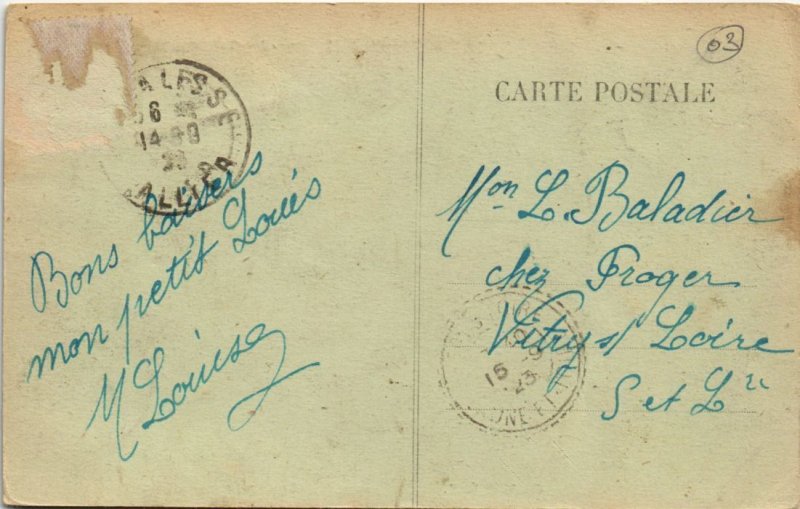 03
CARTE POSTALE
LAPALISSE
14
23
ALLIER
Bons baisers
mon petit Loués
M Louise
Mon L. Baladier
chez Froger
Vitry s/ Loire
S et L
15
23